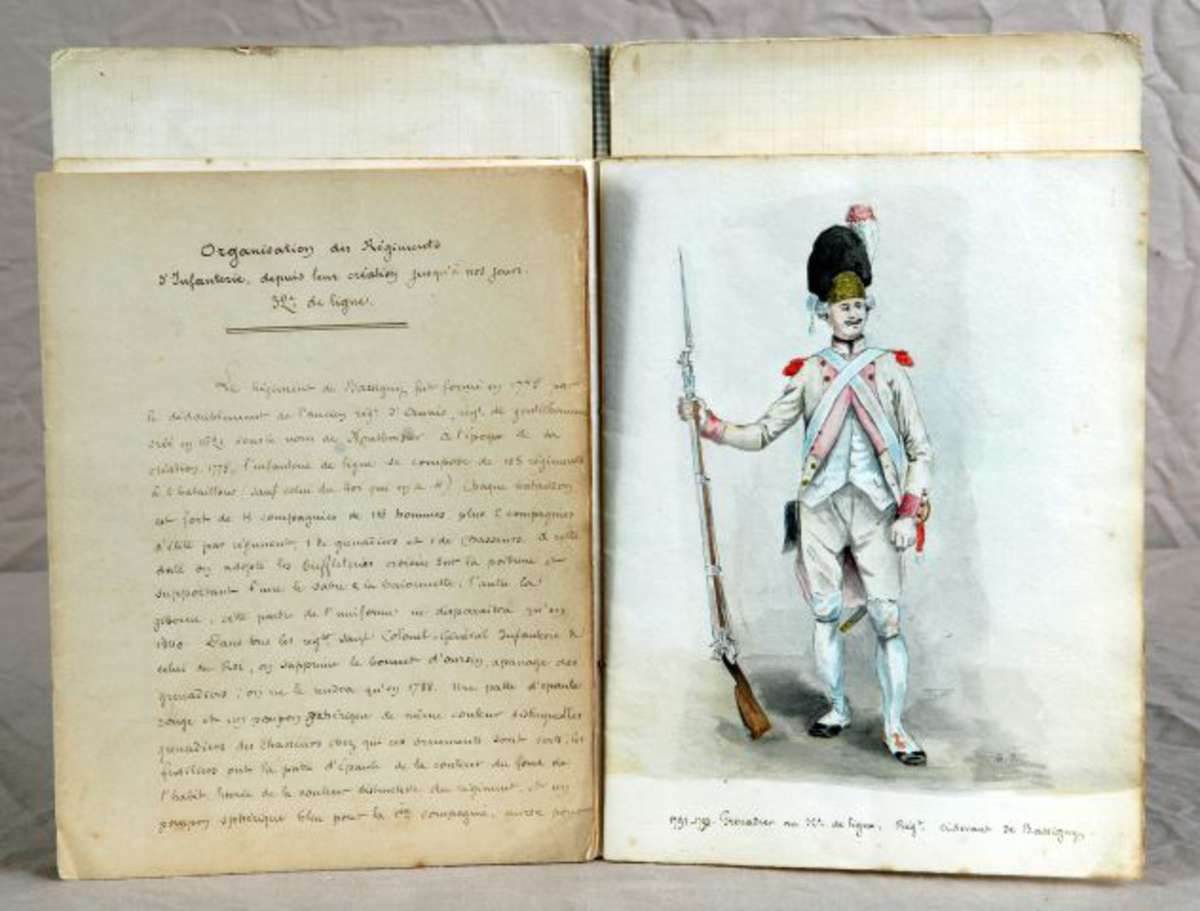 Organisation des Régiments
d'Infanterie, depuis leur création jusqu'à nos jours.
32e de ligne.
Le Régiment de Bassigny fut formé en 1775 par
le dédoublement de l'ancien régt d'Aunis, régt de gentilhomme
créé en 1621 sous le nom de A l'époque de sa
création, 1775, l'infanterie de ligne se compose de régiments
à 2 bataillons (sauf celui du Roi qui en a 4) Chaque bataillon
est fort de 4 compagnies de hommes, plus 2 compagnies
d'élite par régiment, 1 de grenadiers et 1 de chasseurs. A cette
date on adopte les buffleteries croisées sur la poitrine et
supportant l'une le sabre & la baïonnette, l'autre la
giberne; cette partie de l'uniforme ne disparaîtra qu'en
Dans tous les régts sauf Colonel-Général Infanterie &
celui du Roi, on supprime le bonnet d'oursin, apanage des
grenadiers; on ne le rendra qu'en 1788. Une patte d'épaule
rouge et un pompon sphérique de même couleur distingue les
grenadiers des chasseurs chez qui ces ornements sont verts, les
fusiliers ont la patte d'épaule de la couleur du fond de
l'habit, liserée de la couleur distinctive du régiment, et un
pompon sphérique bleu pour la compagnie, aurore pour
1791-1792. Grenadier au 32e de ligne, Régt cidevant de Bassigny.